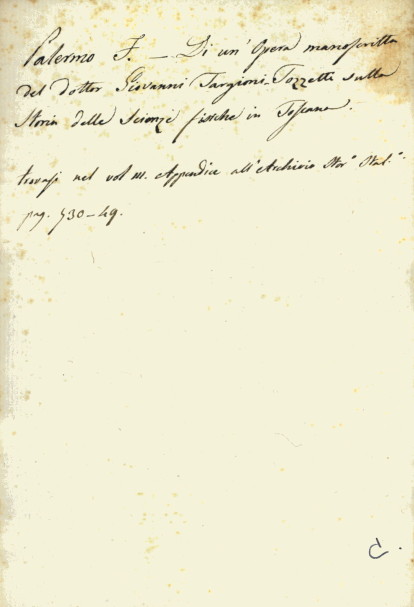 Palermo F. — Di un' Opera manoscritta
del dottor Giovanni Targioni-Tozzetti sulla
Storia delle Scienze fisiche in Toscana.
trovasi nel vol III. Appendice all'Archivio Stor.° Ital.°
pag. 530-49.
C.